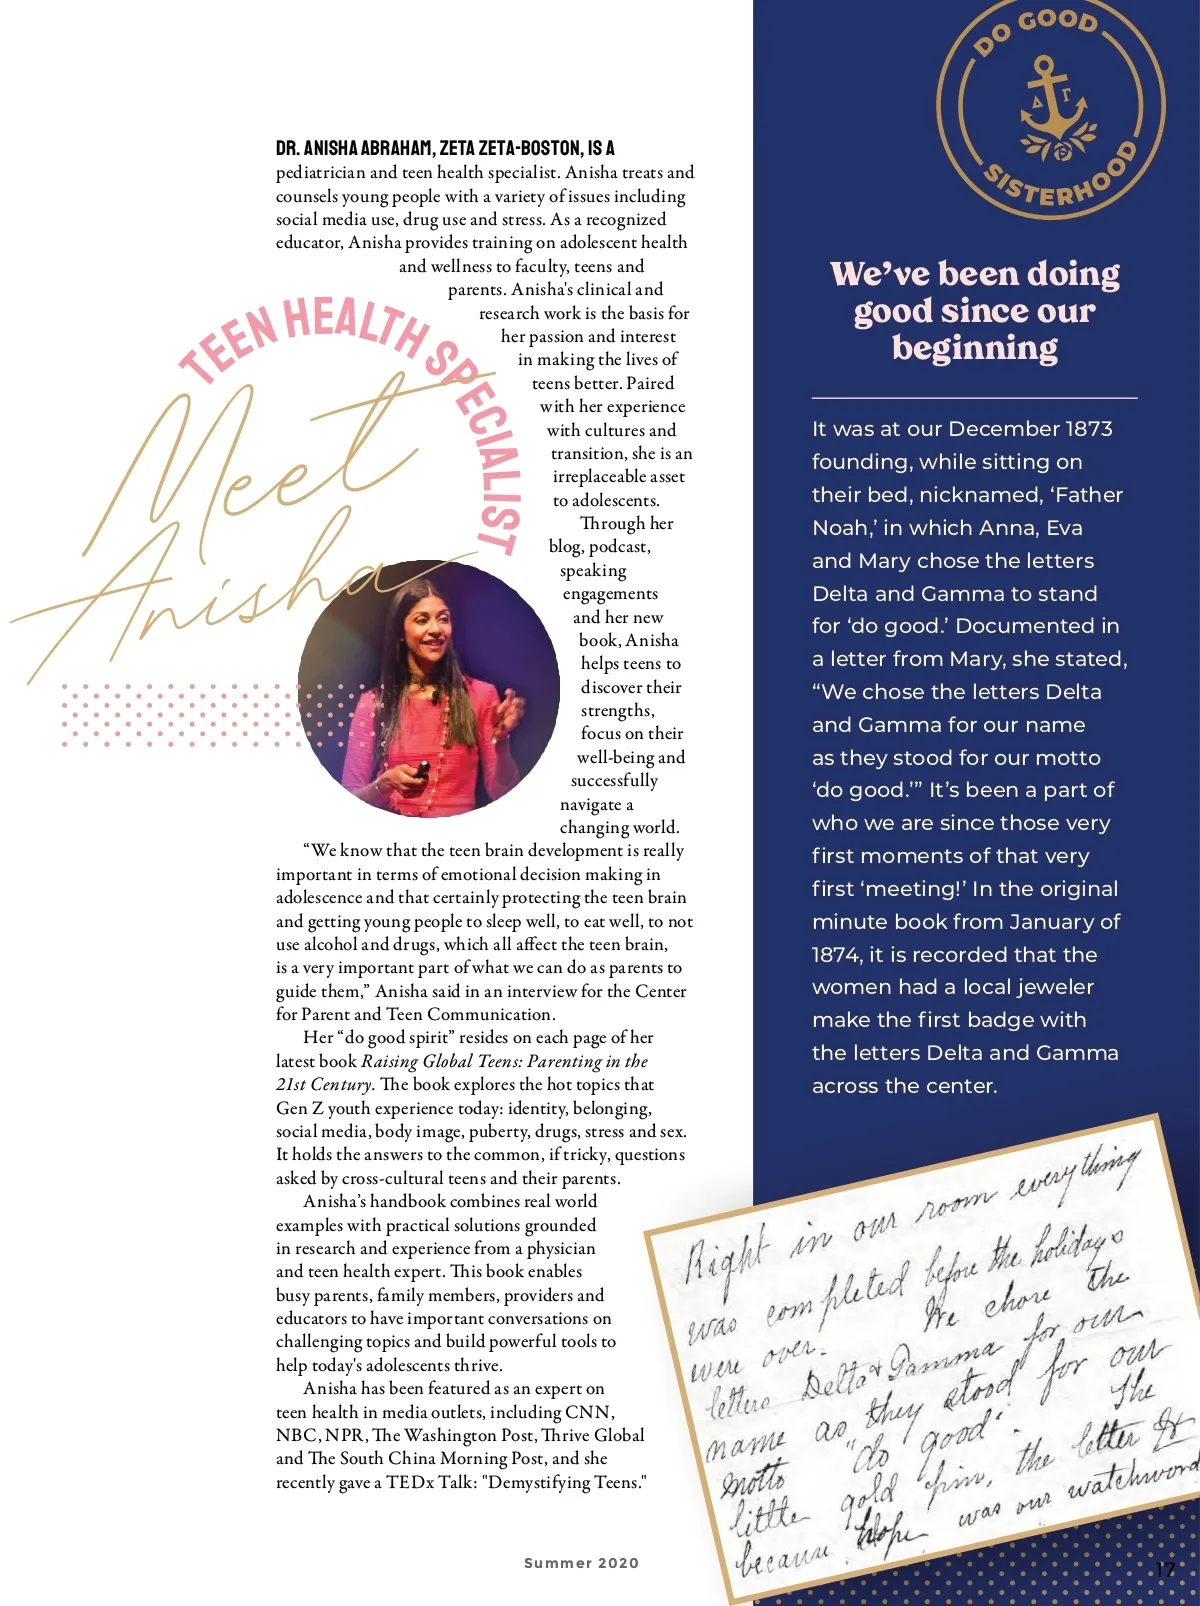 TEEN HEALTH SPECIALIST
Meet
Anisha
DR. ANISHA ABRAHAM, ZETA ZETA-BOSTON, IS A
pediatrician and teen health specialist. Anisha treats and
counsels young people with a variety of issues including
social media use, drug use and stress. As a recognized
educator, Anisha provides training on adolescent health
and wellness to faculty, teens and
parents. Anisha's clinical and
research work is the basis for
her passion and interest
in making the lives of
teens better. Paired
with her experience
with cultures and
transition, she is an
irreplaceable asset
to adolescents.
Through her
blog, podcast,
speaking
engagements
and her new
book, Anisha
helps teens to
discover their
strengths,
focus on their
well-being and
successfully
navigate a
changing world.
“We know that the teen brain development is really
important in terms of emotional decision making in
adolescence and that certainly protecting the teen brain
and getting young people to sleep well, to eat well, to not
use alcohol and drugs, which all affect the teen brain,
is a very important part of what we can do as parents to
guide them,” Anisha said in an interview for the Center
for Parent and Teen Communication.
Her “do good spirit” resides on each page of her
latest book Raising Global Teens: Parenting in the
21st Century. The book explores the hot topics that
Gen Z youth experience today: identity, belonging,
social media, body image, puberty, drugs, stress and sex.
It holds the answers to the common, if tricky, questions
asked by cross-cultural teens and their parents.
Anisha’s handbook combines real world
examples with practical solutions grounded
in research and experience from a physician
and teen health expert. This book enables
busy parents, family members, providers and
educators to have important conversations on
challenging topics and build powerful tools to
help today's adolescents thrive.
Anisha has been featured as an expert on
teen health in media outlets, including CNN,
NBC, NPR, The Washington Post, Thrive Global
and The South China Morning Post, and she
recently gave a TEDx Talk: "Demystifying Teens."
DO GOOD
Δ Γ
SISTERHOOD
We’ve been doing
good since our
beginning
It was at our December 1873
founding, while sitting on
their bed, nicknamed, ‘Father
Noah,’ in which Anna, Eva
and Mary chose the letters
Delta and Gamma to stand
for ‘do good.’ Documented in
a letter from Mary, she stated,
“We chose the letters Delta
and Gamma for our name
as they stood for our motto
‘do good.’” It’s been a part of
who we are since those very
first moments of that very
first ‘meeting!’ In the original
minute book from January of
1874, it is recorded that the
women had a local jeweler
make the first badge with
the letters Delta and Gamma
across the center.
Right in our room everything
was completed before the holidays
were over. We chose the
letters Delta & Gamma for our
name as they stood for our
motto "do good". The
little gold pin, the letter H
because Hope was our watchword
Summer 2020
17